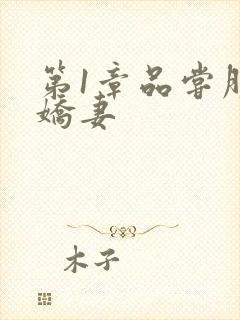 第1章品尝
娇妻
木子